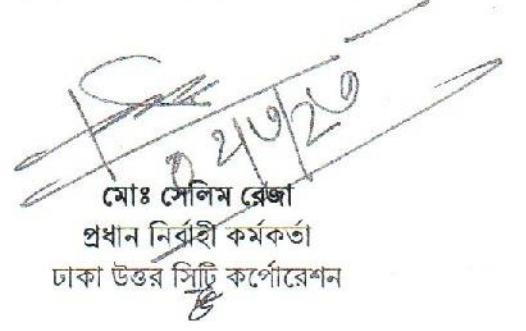 মোঃ সেলিম রেজা
প্রধান নির্বাহী কর্মকর্তা
ঢাকা উত্তর সিটি কর্পোরেশন